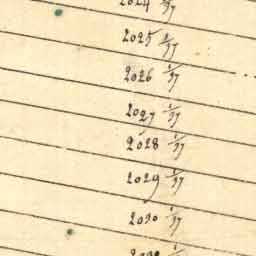 2024 1/37
2025 1/37
2026 1/37
2027 1/37
2028 1/37
2029 1/37
2030 1/37